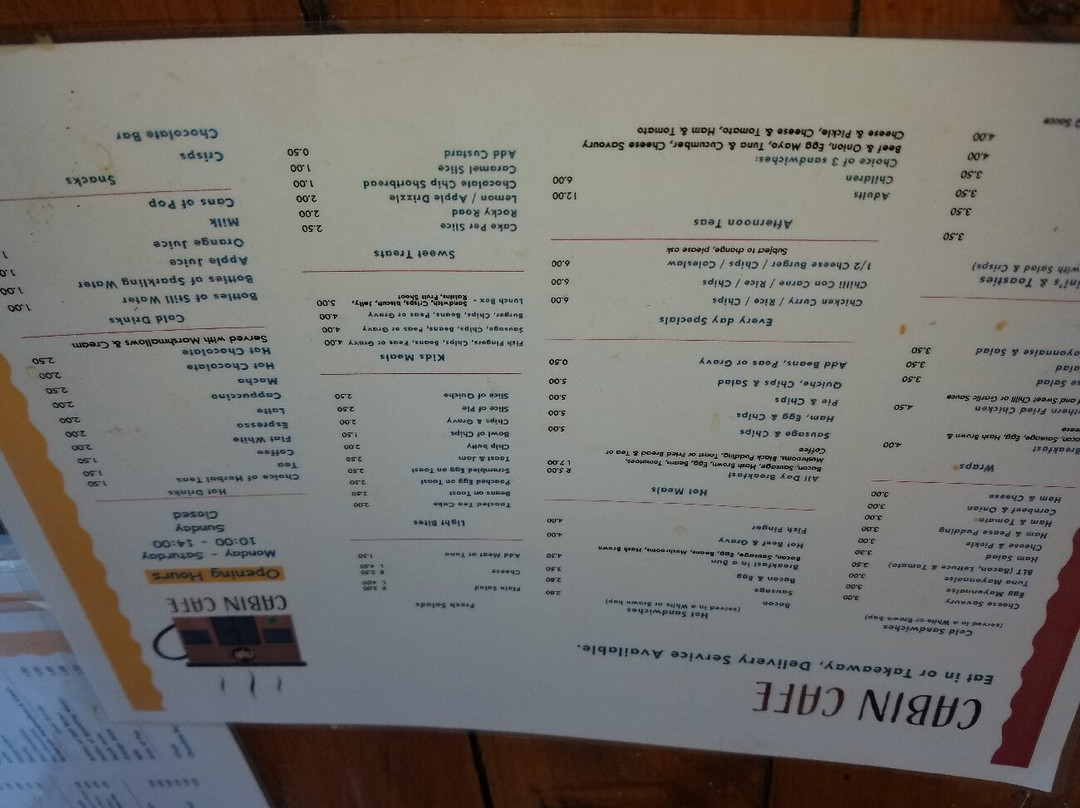 CABIN CAFE
Eat in or Takeaway, Delivery Service Available.
Cold Sandwiches
(served in a White or Brown bap)
Cheese Savoury 3.00
Egg Mayonnaise 3.00
Tuna Mayonnaise 3.00
BLT (Bacon, Lettuce & Tomato) 3.50
Ham Salad 3.30
Cheese & Pickle 3.00
Ham & Pease Pudding 3.00
Ham & Tomato 3.00
Cornbeef & Onion 3.00
Ham & Cheese 3.00
Wraps
Breakfast 4.00
Bacon, Sausage, Egg, Hash Brown &
Southern Fried Chicken 4.50
and Sweet Chilli or Garlic Sauce
Salad 3.50
Salad 3.50
Mayonnaise & Salad 3.50
Toasties
(with Salad & Crisps)
3.50
3.50
3.50
3.50
4.00
4.00
Sauce
Hot Sandwiches
(served in a White or Brown bap)
Bacon
Sausage 2.80
Bacon & Egg 2.80
Breakfast in a Bun 3.50
Bacon, Sausage, Egg, Beans, Mushrooms, Hash Brown 4.50
Hot Beef & Gravy 4.00
Fish Finger 4.00
Hot Meals
All Day Breakfast R 5.00
Bacon, Sausage, Hash Brown, Egg, Beans, Tomatoes, L 7.00
Mushrooms, Black Pudding, Toast or Fried Bread & Tea or
Coffee
Sausage & Chips 5.00
Ham, Egg & Chips 5.00
Pie & Chips 5.00
Quiche, Chips & Salad 5.00
Add Beans, Peas or Gravy 0.50
Every day Specials
Chicken Curry / Rice / Chips 6.00
Chilli Con Carne / Rice / Chips 6.00
1/2 Cheese Burger / Chips / Coleslaw 6.00
Subject to change, please ask
Afternoon Teas
Adults 12.00
Children 6.00
Choice of 3 sandwiches:
Beef & Onion, Egg Mayo, Tuna & Cucumber, Cheese Savoury
Cheese & Pickle, Cheese & Tomato, Ham & Tomato
Fresh Salads
Plain Salad R 3.00
L 4.00
Cheese R 3.50
L 4.50
Add Meat or Tuna 1.50
Light Bites
Toasted Tea Cake 2.00
Beans on Toast 2.50
Poached Egg on Toast 2.50
Scrambled Egg on Toast 2.50
Toast & Jam 2.50
Chip butty 2.00
Bowl of Chips 1.50
Chips & Gravy 2.00
Slice of Pie 2.50
Slice of Quiche 2.50
Kids Meals
Fish Fingers, Chips, Beans, Peas or Gravy 4.00
Sausage, Chips, Beans, Peas or Gravy 4.00
Burger, Chips, Beans, Peas or Gravy 4.00
Lunch Box - Sandwich, Crisps, Biscuit, Jelly, 5.00
Raisins, Fruit Shoot
Sweet Treats
Cake Per Slice 2.50
Rocky Road 2.00
Lemon / Apple Drizzle 2.00
Chocolate Chip Shortbread 1.00
Caramel Slice 1.00
Add Custard 0.50
CABIN CAFE
Opening Hours
Monday - Saturday
10:00 - 14:00
Sunday
Closed
Hot Drinks
Choice of Herbal Teas 1.50
Tea 1.50
Coffee 1.50
Flat White 2.00
Espresso 2.00
Latte 2.00
Cappuccino 2.50
Mocha 2.00
Hot Chocolate 2.00
Hot Chocolate 2.50
Served with Marshmallows & Cream
Cold Drinks
Bottles of Still Water 1.00
Bottles of Sparkling Water 1.00
Apple Juice
Orange Juice
Milk
Cans of Pop
Snacks
Crisps
Chocolate Bar